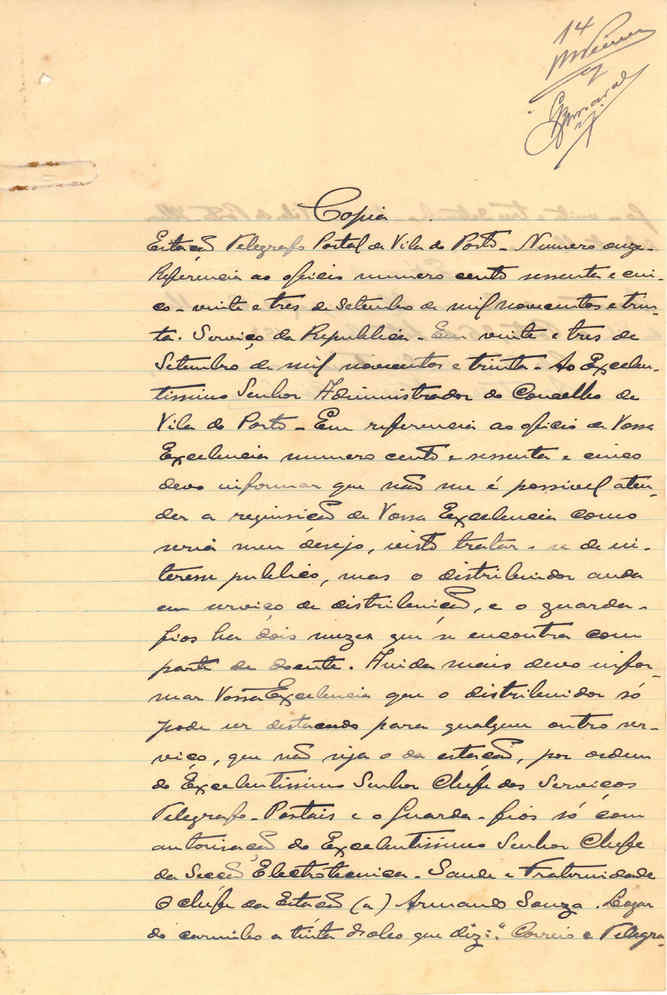 14
Copia
Estação Telegrafo Postal da Vila do Porto - Numero onze -
Referencia ao oficio numero cento sessenta e cin-
co - vinte e tres de Setembro de mil novecentos e trin-
ta. Serviço da Republica - Em vinte e tres de
Setembro de mil novecentos e trinta - Ao Excelen-
tissimo Senhor Administrador do Concelho de
Vila do Porto - Em referencia ao oficio de Vossa
Excelencia numero cento e sessenta e cinco
devo informar que não me é possivel aten-
der a requisição de Vossa Excelencia como
seria meu desejo, visto tratar-se de in-
teresse publico, mas o distribuidor anda
em serviço de distribuição, e o guarda-
fios ha dois mezes que se encontra com
parte de doente. Ainda mais devo infor-
mar Vossa Excelencia que o distribuidor só
pode ser destacado para qualquer outro ser-
viço, que não seja o da estação, por ordem
do Excelentissimo Senhor Chefe dos Serviços
Telegrafo-Postais e o Guarda-fios só com
autorisação do Excelentissimo Senhor Chefe
da Secção Electrotecnica - Saude e Fraternidade
O chefe da Estação (a) Armando Souza. Logar
do carimbo a tinta d'oleo que diz: "Correio e Telegra-